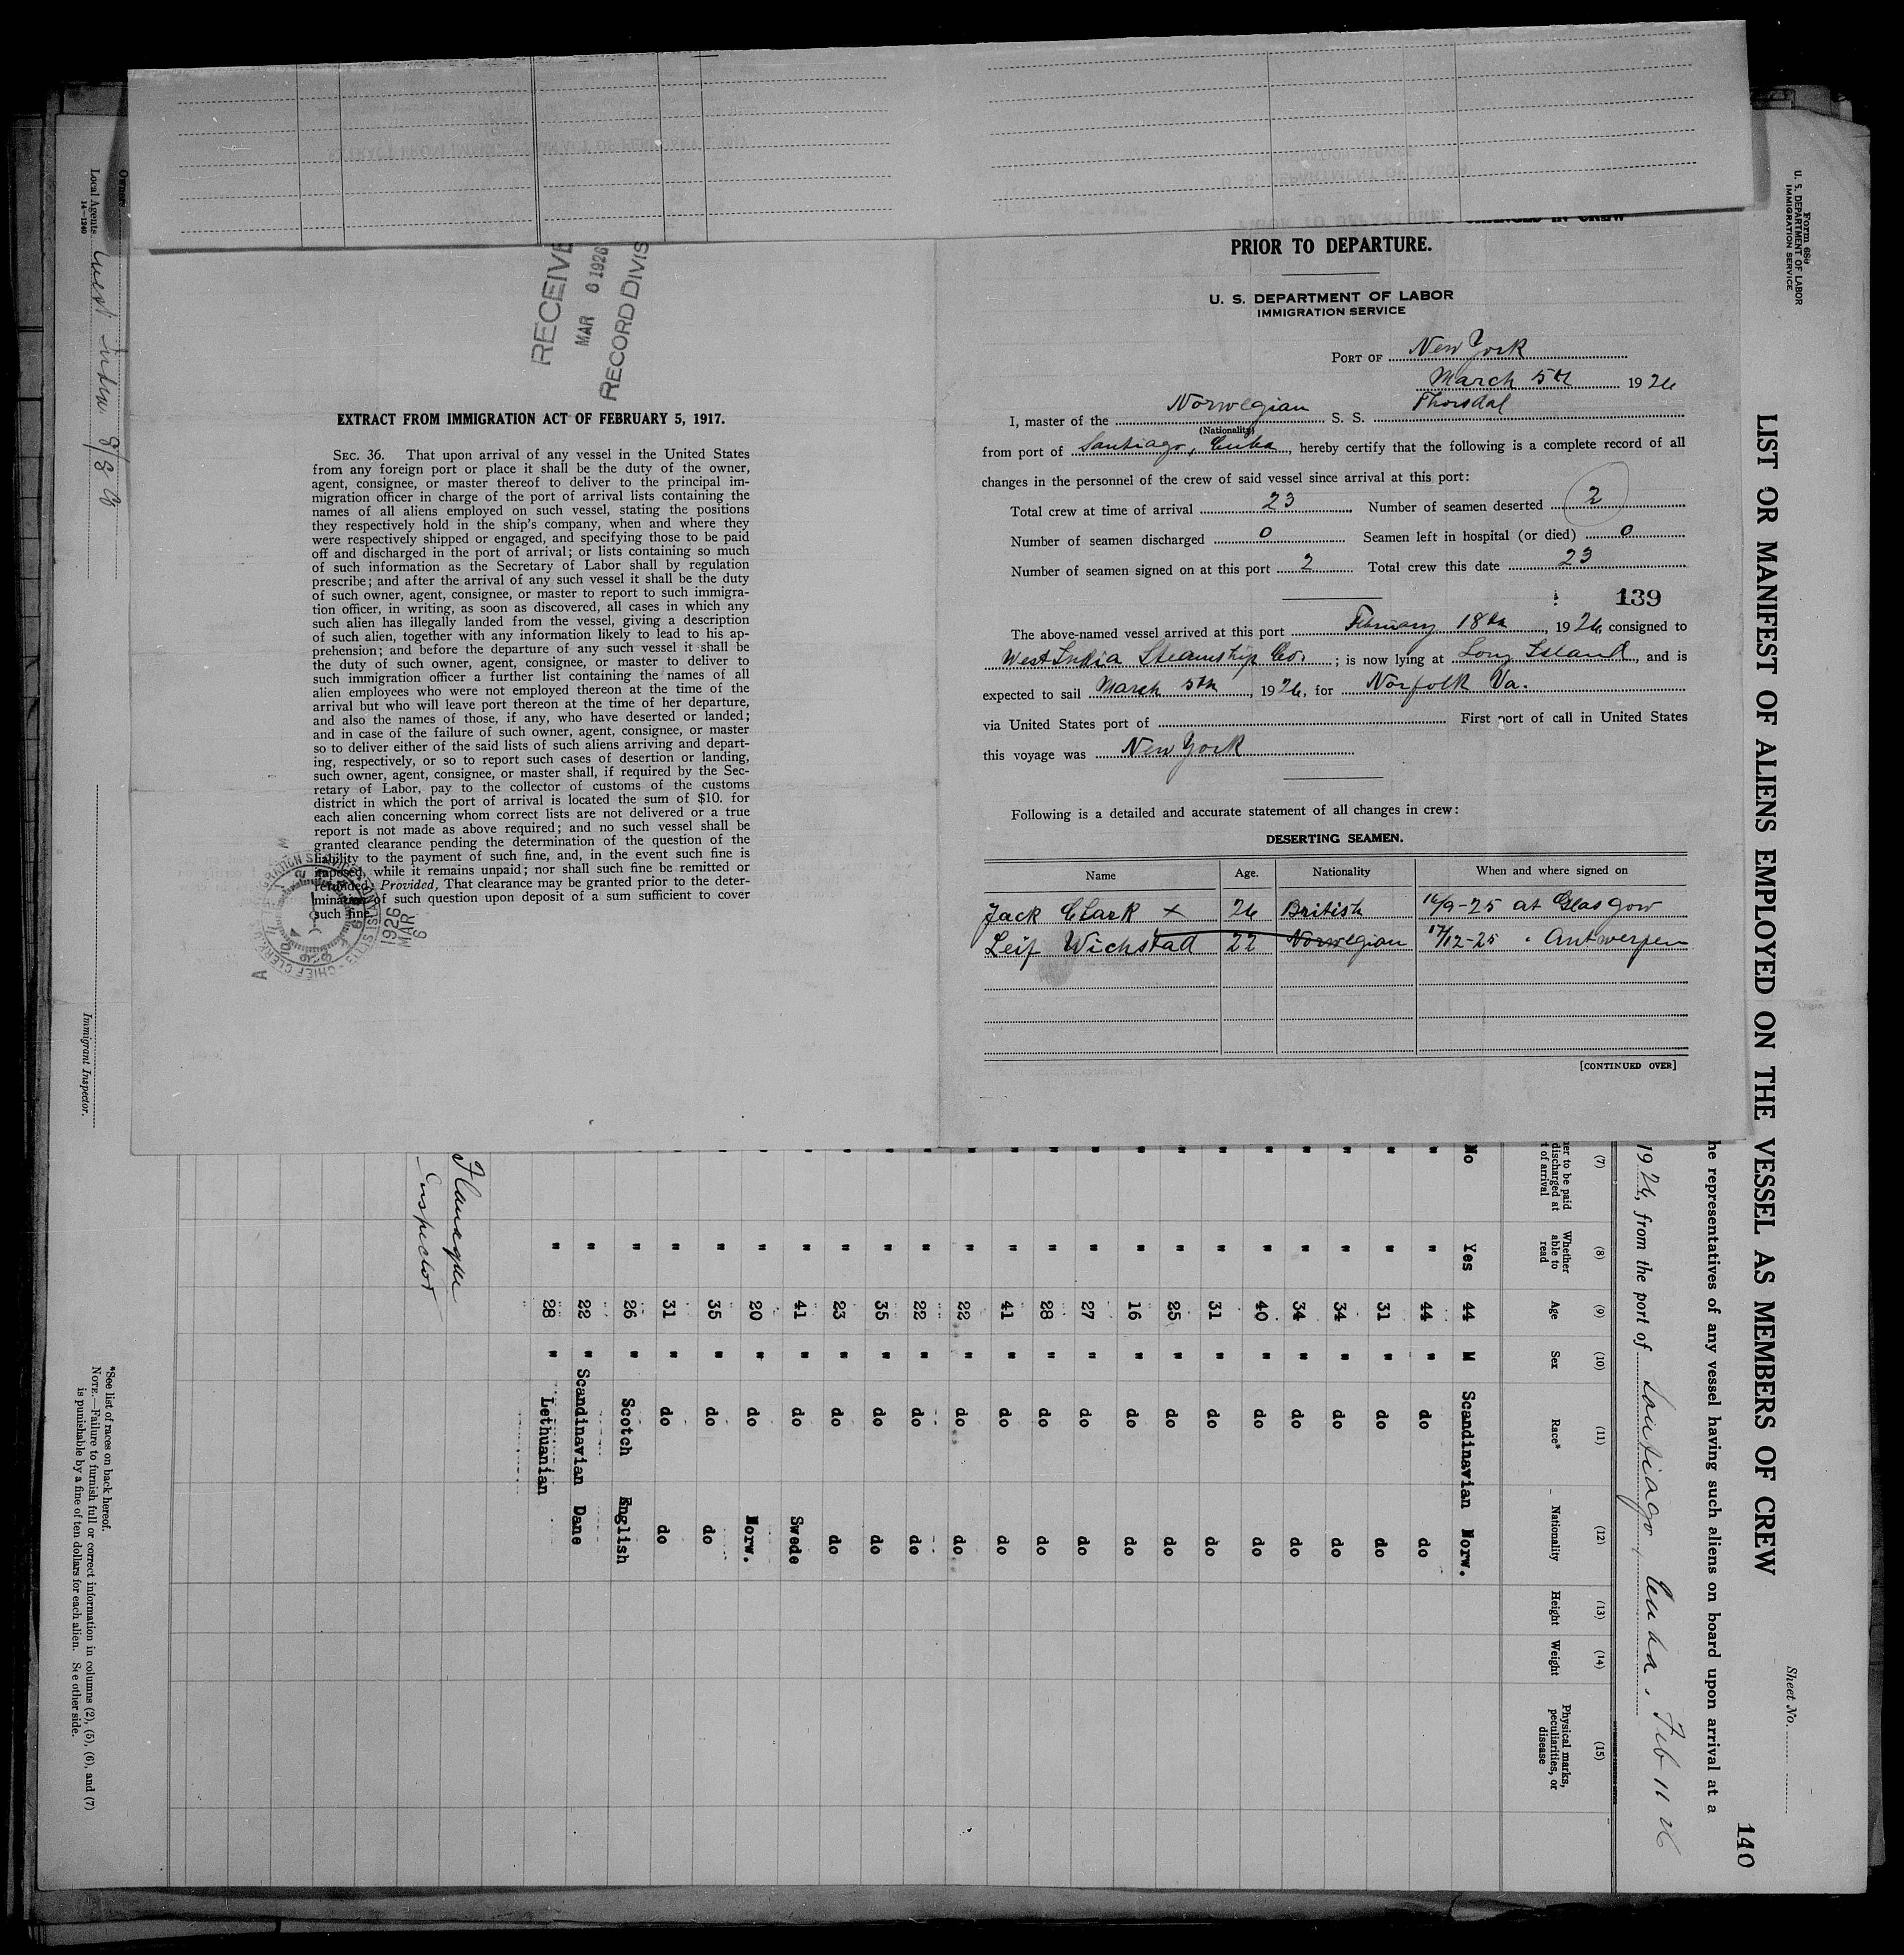 RECEIVE
MAR 6 1926
RECORD DIVIS
EXTRACT FROM IMMIGRATION ACT OF FEBRUARY 5, 1917.
SEC. 36. That upon arrival of any vessel in the United States
from any foreign port or place it shall be the duty of the owner,
agent, consignee, or master thereof to deliver to the principal im-
migration officer in charge of the port of arrival lists containing the
names of all aliens employed on such vessel, stating the positions
they respectively hold in the ship's company, when and where they
were respectively shipped or engaged, and specifying those to be paid
off and discharged in the port of arrival; or lists containing so much
of such information as the Secretary of Labor shall by regulation
prescribe; and after the arrival of any such vessel it shall be the duty
of such owner, agent, consignee, or master to report to such immigra-
tion officer, in writing, as soon as discovered, all cases in which any
such alien has illegally landed from the vessel, giving a description
of such alien, together with any information likely to lead to his ap-
prehension; and before the departure of any such vessel it shall be
the duty of such owner, agent, consignee, or master to deliver to
such immigration officer a further list containing the names of all
alien employees who were not employed thereon at the time of the
arrival but who will leave port thereon at the time of her departure,
and also the names of those, if any, who have deserted or landed;
and in case of the failure of such owner, agent, consignee, or master
so to deliver either of the said lists of such aliens arriving and depart-
ing, respectively, or so to report such cases of desertion or landing,
such owner, agent, consignee, or master shall, if required by the Sec-
retary of Labor, pay to the collector of customs of the customs
district in which the port of arrival is located the sum of $10. for
each alien concerning whom correct lists are not delivered or a true
report is not made as above required; and no such vessel shall be
granted clearance pending the determination of the question of the
liability to the payment of such fine, and, in the event such fine is
imposed, while it remains unpaid; nor shall such fine be remitted or
refunded: Provided, That clearance may be granted prior to the deter-
mination of such question upon deposit of a sum sufficient to cover
such fine.
1926
MAR
6
PRIOR TO DEPARTURE.
U. S. DEPARTMENT OF LABOR
IMMIGRATION SERVICE
PORT OF New York
March 5th 1926
I, master of the Norwegian S. S. Thorsdal
(Nationality)
from port of Santiago, Cuba, hereby certify that the following is a complete record of all
changes in the personnel of the crew of said vessel since arrival at this port:
Total crew at time of arrival 23 Number of seamen deserted 2
Number of seamen discharged 0 Seamen left in hospital (or died) 0
Number of seamen signed on at this port 2 Total crew this date 23
139
The above-named vessel arrived at this port February 18th, 1926, consigned to
West India Steamship Co.; is now lying at Long Island, and is
expected to sail March 5th, 1926, for Norfolk Va.
via United States port of First port of call in United States
this voyage was New York
Following is a detailed and accurate statement of all changes in crew:
DESERTING SEAMEN.
Name Age. Nationality When and where signed on
Jack Clark x 26 British 16/9-25 at Glasgow
Leif Wichstad 22 Norwegian 17/12-25 " Antwerpen
[CONTINUED OVER]
Form 689
U. S. DEPARTMENT OF LABOR
IMMIGRATION SERVICE
Sheet No.
140
LIST OR MANIFEST OF ALIENS EMPLOYED ON THE VESSEL AS MEMBERS OF CREW
he representatives of any vessel having such aliens on board upon arrival at a
1926, from the port of Santiago Cuba, Feb 11 26
(7) (8) (9) (10) (11) (12) (13) (14) (15)
er to be paid discharged at t of arrival Whether able to read Age Sex Race* Nationality Height Weight Physical marks, peculiarities, or disease
No Yes 44 M Scandinavian Norw.
" " 44 " do do
" " 31 " do do
" " 34 " do do
" " 34 " do do
" " 40 " do do
" " 31 " do do
" " 25 " do do
" " 16 " do do
" " 27 " do do
" " 28 " do do
" " 41 " do do
" " 22 " do do
" " 22 " do do
" " 35 " do do
" " 23 " do do
" " 41 " do Swede
" " 20 " do Norw.
" " 35 " do do
" " 31 " do do
" " 26 " Scotch English
" " 22 " Scandinavian Dane
" 28 " Lethuanian
Inspector
*See list of races on back hereof.
NOTE.—Failure to furnish full or correct information in columns (2), (5), (6), and (7)
is punishable by a fine of ten dollars for each alien. See other side.
Immigrant Inspector.
Owners
Local Agents West India
14-1240